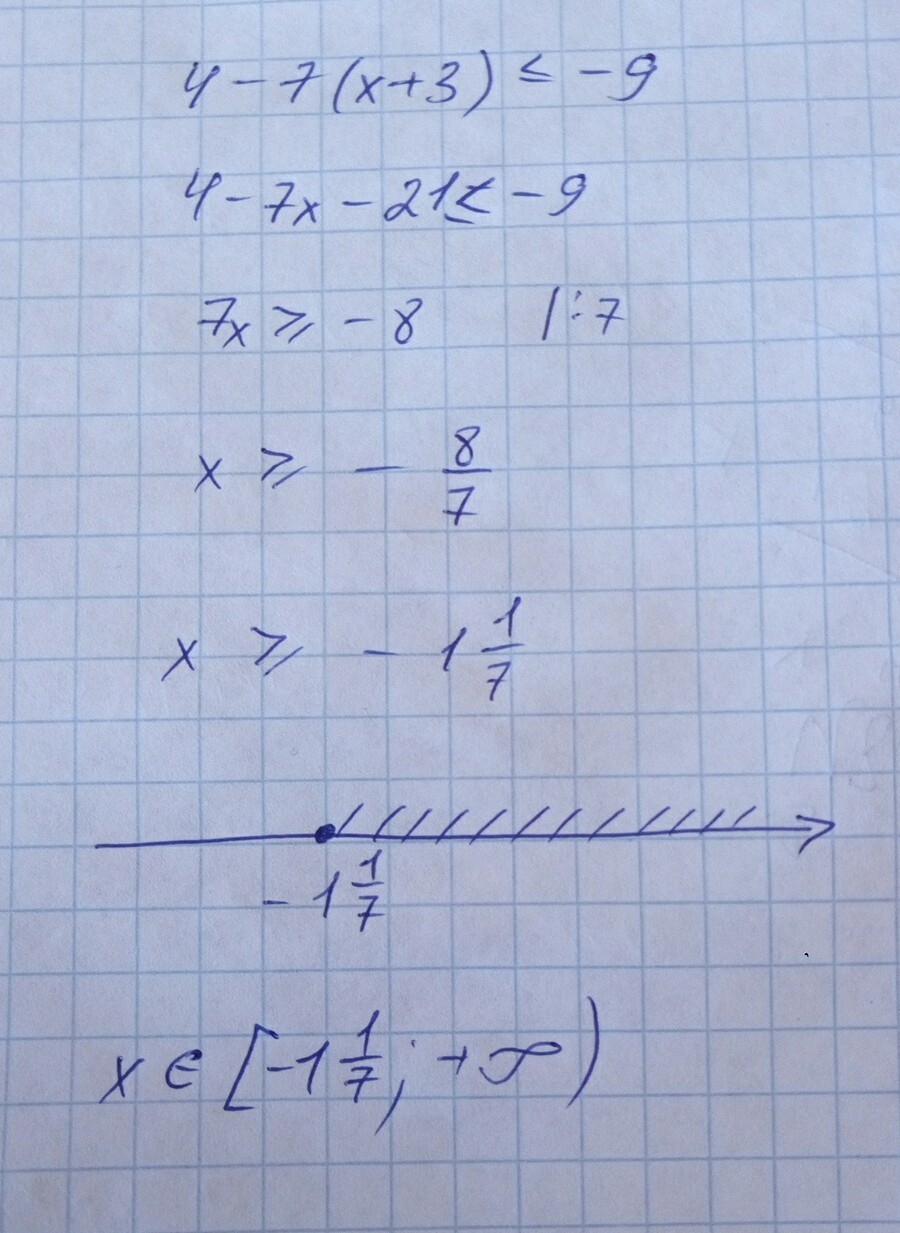 4 - 7(x+3) ≤ -9
4 - 7x - 21 ≤ -9
7x ⩾ -8 |:7
x ⩾ - 8/7
x ⩾ - 1 1/7
- 1 1/7
x ∈ [-1 1/7; +∞)